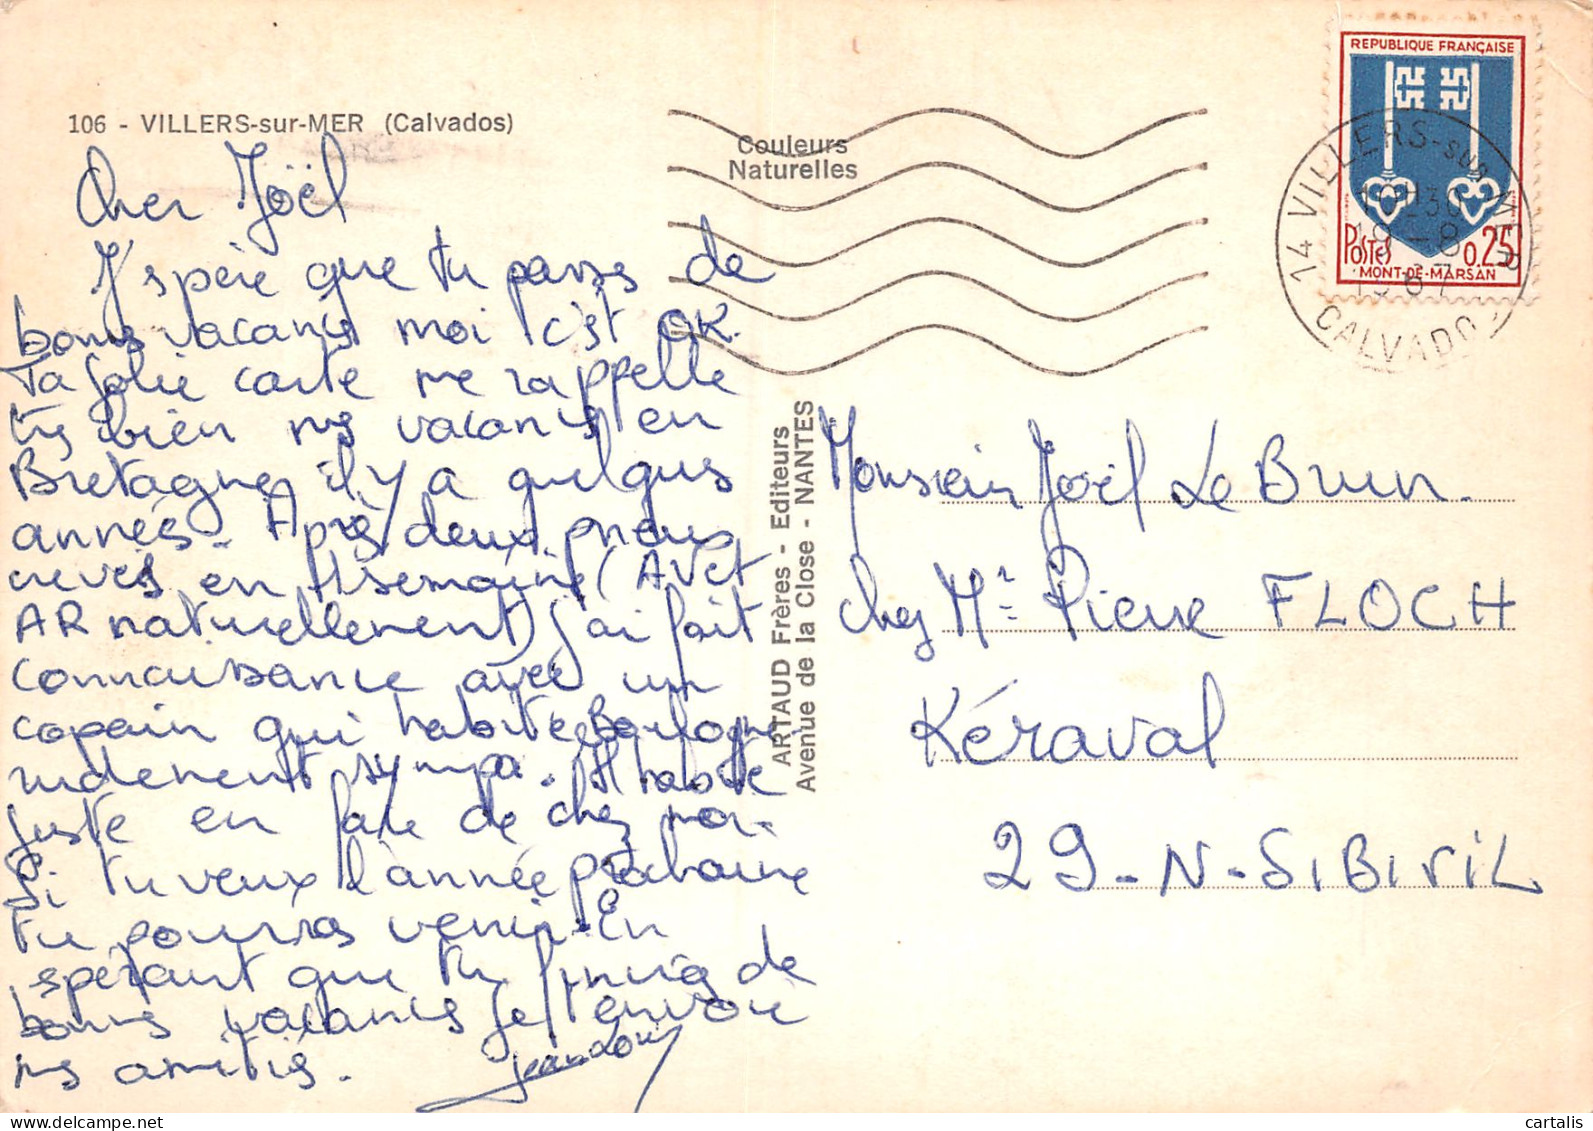 106 - VILLERS-sur-MER (Calvados)
Couleurs
Naturelles
REPUBLIQUE FRANÇAISE
POSTES 0.25
MONT-DE-MARSAN
14 VILLERS-sur-MER
10H30
18-8
1967
CALVADOS
Cher Joël
J'spère que tu passes de
bonnes vacances moi c'est OK.
Ta jolie carte me rappelle
très bien mes vacances en
Bretagne il y a quelques
années. Après deux pneus
crevés en 1 semaine (AV et
AR naturellement) j'ai fait
connaissance avec un
copain qui habite Boulogne
rudement sympa. Il habite
juste en face de chez moi.
Si tu veux l'année prochaine
tu pourras venir. En
espérant que tu finiras de
bonnes vacances je t'envoie
mes amitiés.
Jean Louis
ARTAUD Frères - Editeurs
Avenue de la Close - NANTES
Monsieur Joël Le Brun.
chez Mr Pierre FLOCH
Kéraval
29-N-SIBIRIL
cartalis